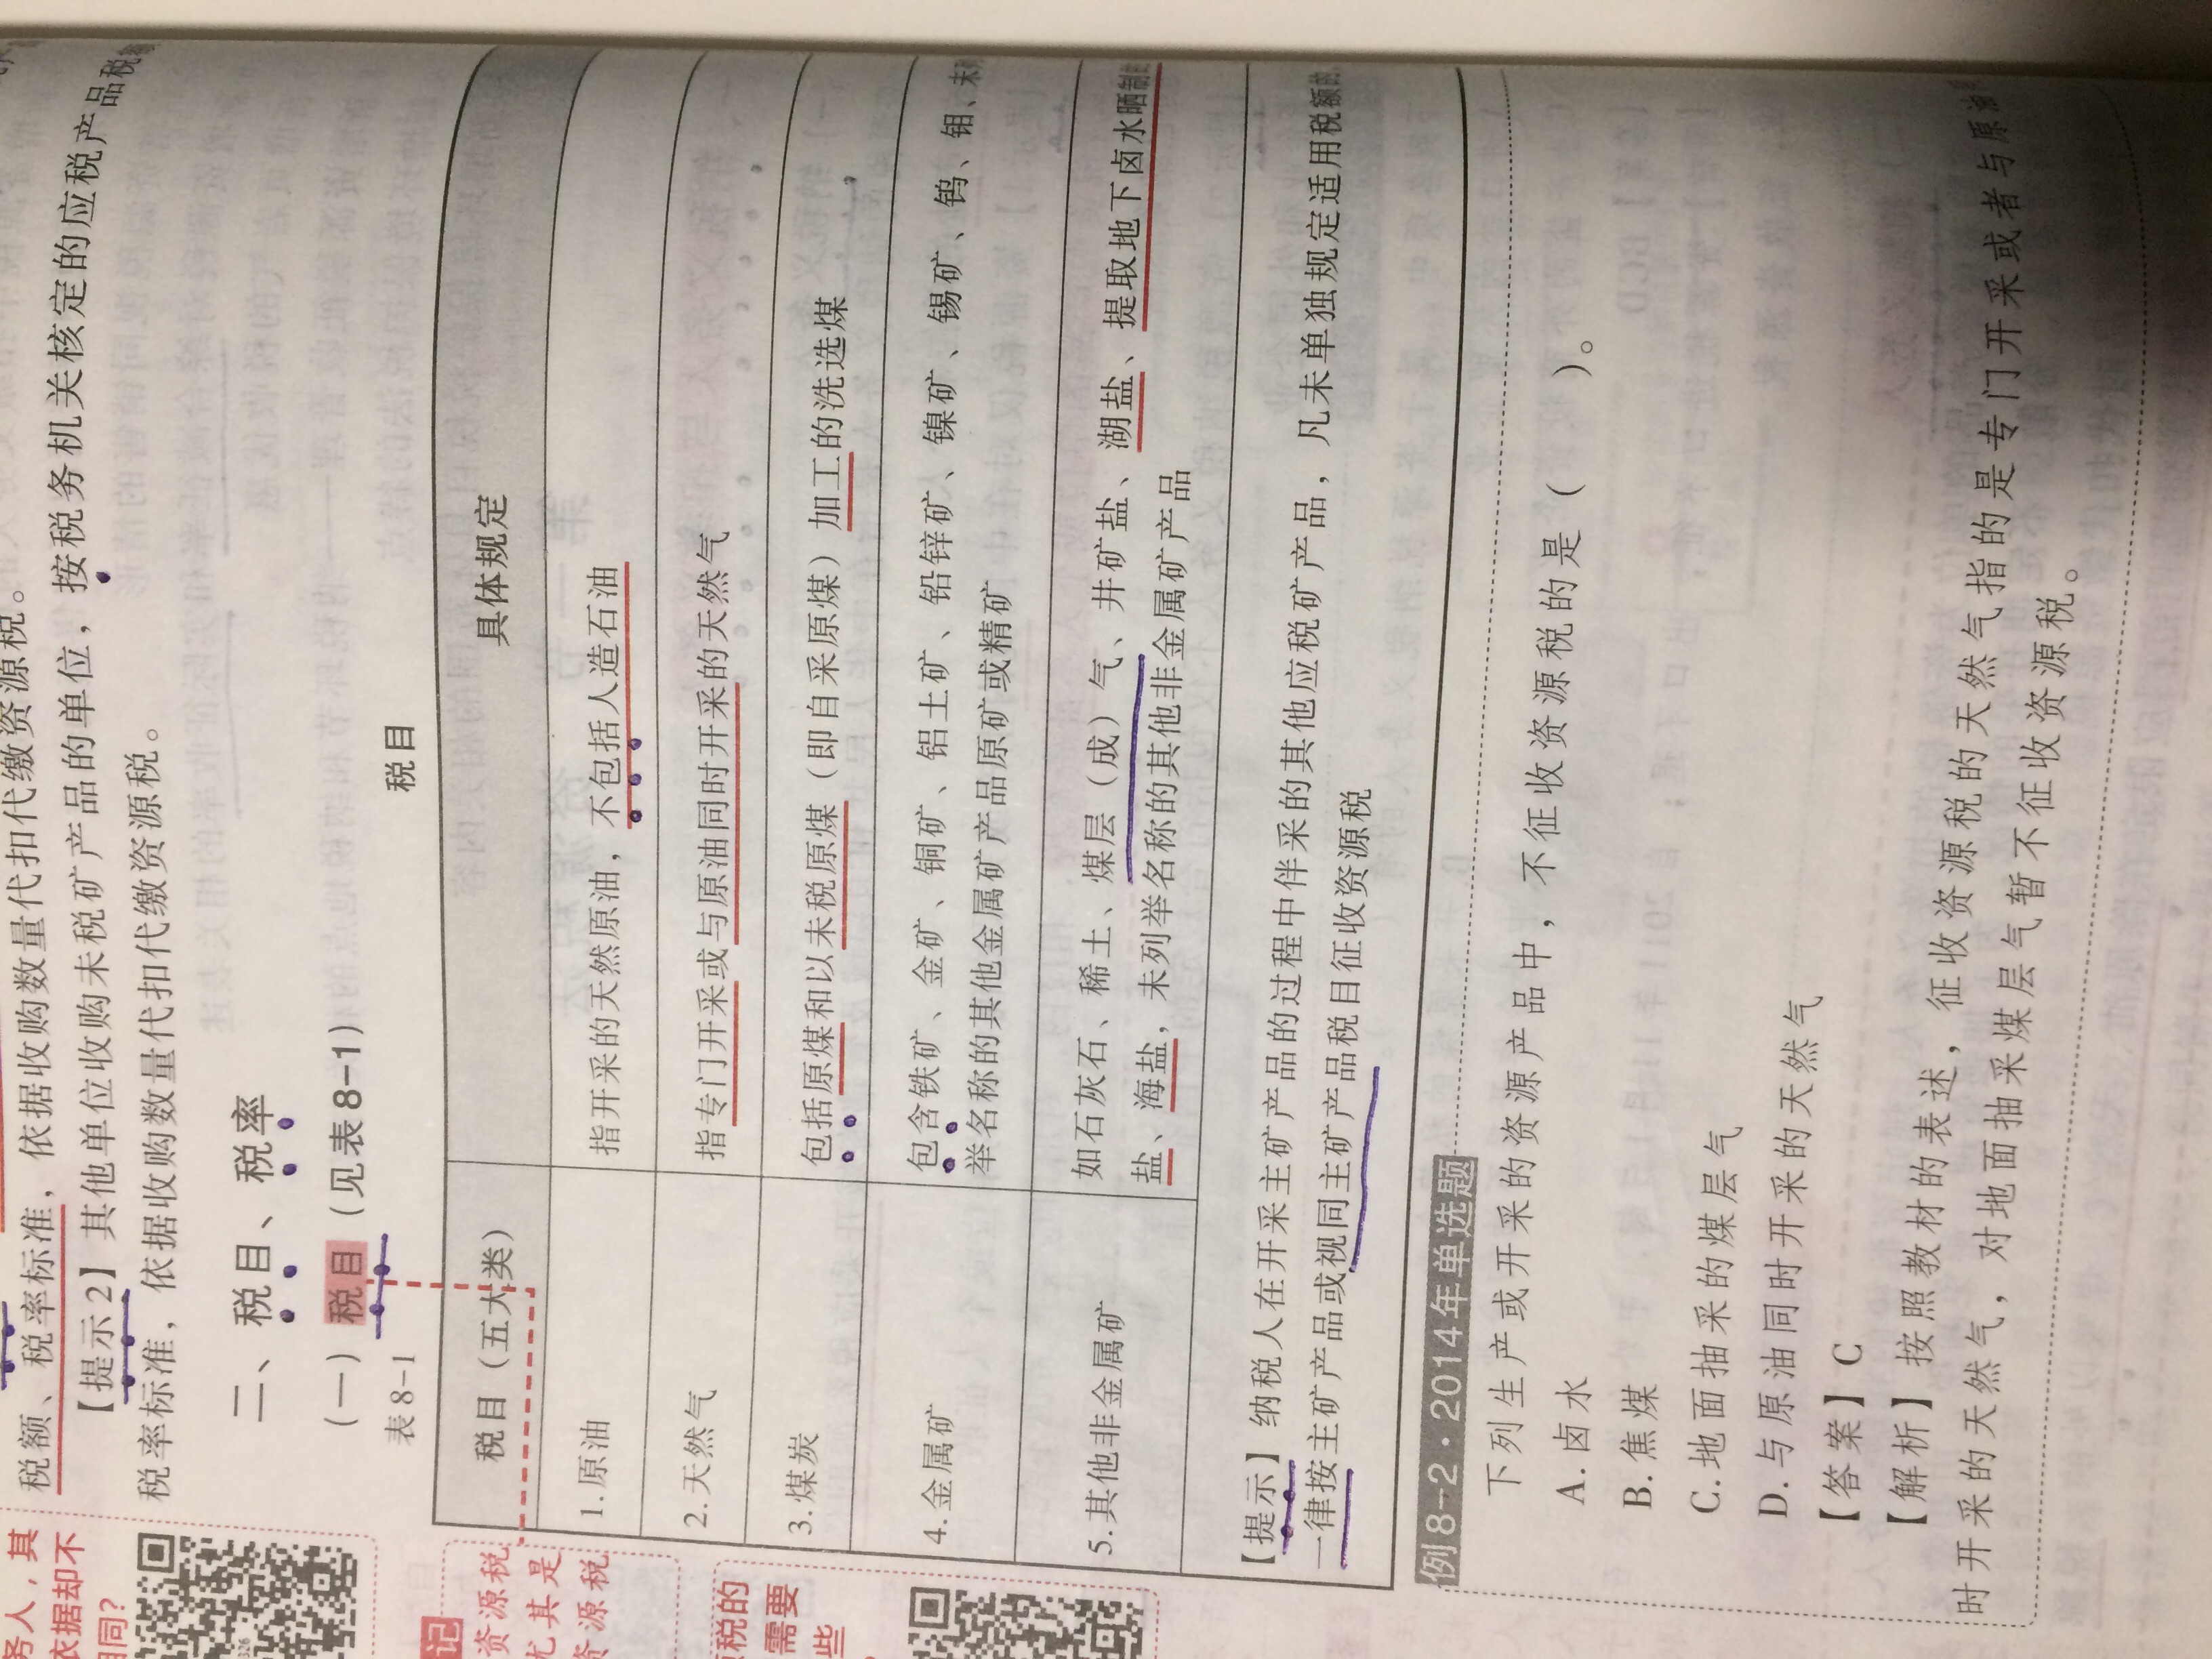 税额、税率标准，依据收购数量代扣代缴资源税。
【提示2】其他单位收购未税矿产品的单位，按税务机关核定的应税产品税
税率标准，依据收购数量代扣代缴资源税。
二、税目、税率
（一）税目（见表8-1）
表8-1 税目
税目（五大类） 具体规定
1.原油 指开采的天然原油，不包括人造石油
2.天然气 指专门开采或与原油同时开采的天然气
3.煤炭 包括原煤和以未税原煤（即自采原煤）加工的洗选煤
4.金属矿 包含铁矿、金矿、铜矿、铝土矿、铅锌矿、镍矿、锡矿、钨、钼、未
举名称的其他金属矿产品原矿或精矿
5.其他非金属矿 如石灰石、稀土、煤层（成）气、井矿盐、湖盐、提取地下卤水晒制的
盐、海盐，未列举名称的其他非金属矿产品
【提示】纳税人在开采主矿产品的过程中伴采的其他应税矿产品，凡未单独规定适用税额的
一律按主矿产品或视同主矿产品税目征收资源税
例8-2·2014年单选题
下列生产或开采的资源产品中，不征收资源税的是（ ）。
A.卤水
B.焦煤
C.地面抽采的煤层气
D.与原油同时开采的天然气
【答案】C
【解析】按照教材的表述，征收资源税的天然气指的是专门开采或者与原油
时开采的天然气，对地面抽采煤层气暂不征收资源税。
务人，其
依据却不
相同？
记
资源税
尤其是
资源税
税的
需要
些